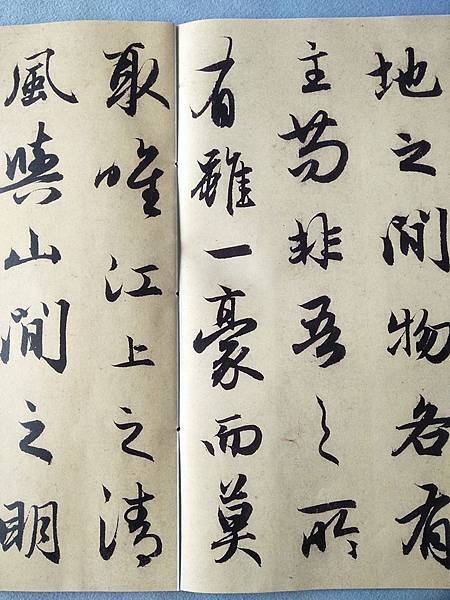 地之间物各有
主苟非吾之所
有雖一豪而莫
取唯江上之清
風與山間之明